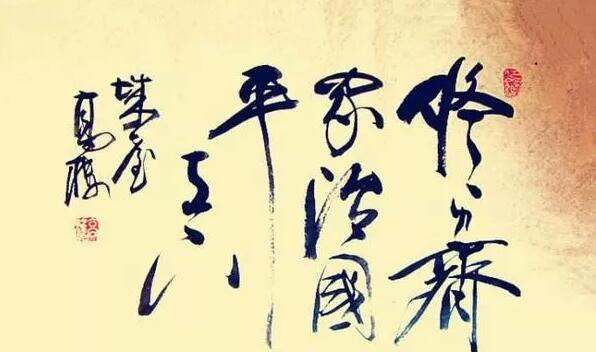 修身齊
家治國
平天下